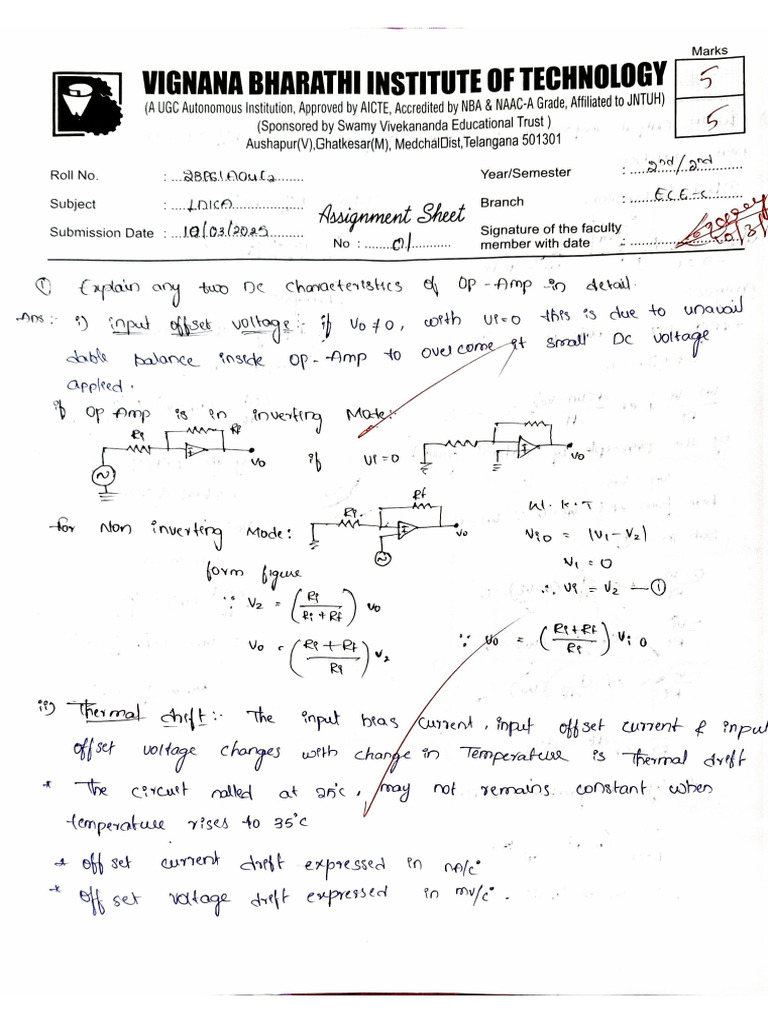 Marks
VIGNANA BHARATHI INSTITUTE OF TECHNOLOGY
5
(A UGC Autonomous Institution, Approved by AICTE, Accredited by NBA & NAAC-A Grade, Affiliated to JNTUH)
(Sponsored by Swamy Vivekananda Educational Trust )
5
Aushapur(V),Ghatkesar(M), MedchalDist,Telangana 501301
Roll No. :
Year/Semester : 2nd/2nd
Subject : LDICA
Assignment Sheet
Branch : ECE-C
Submission Date : 10/03/2025
No : 01
Signature of the faculty
member with date :
① Explain any two DC characteristics of Op-Amp in detail.
Ans: i) input offset voltage:- if V0 ≠ 0, with Vi=0 this is due to unavail
dable balance inside OP-Amp to overcome it small DC voltage
applied.
if Op Amp is in inverting Mode:-
Ri Rf Vo if Vi=0 Vo
for Non inverting Mode: Ri Rf Vo
W.K.T
Vio = |V1-V2|
V1 = 0
∴ Vi = V2 —①
form figure
∵ V2 = (Ri / Ri + Rf) Vo
Vo = (Ri + Rf / Ri) V2
∵ Vo = (Ri + Rf / Ri) Vi o
ii) Thermal drift:- The input bias current, input offset current & input
offset voltage changes with change in Temperature is Thermal drift
* The circuit nalled at 25°c, may not remains constant when
temperature rises to 35°c
* offset current drift expressed in nA/c°
* off set voltage drift expressed in mv/c°.